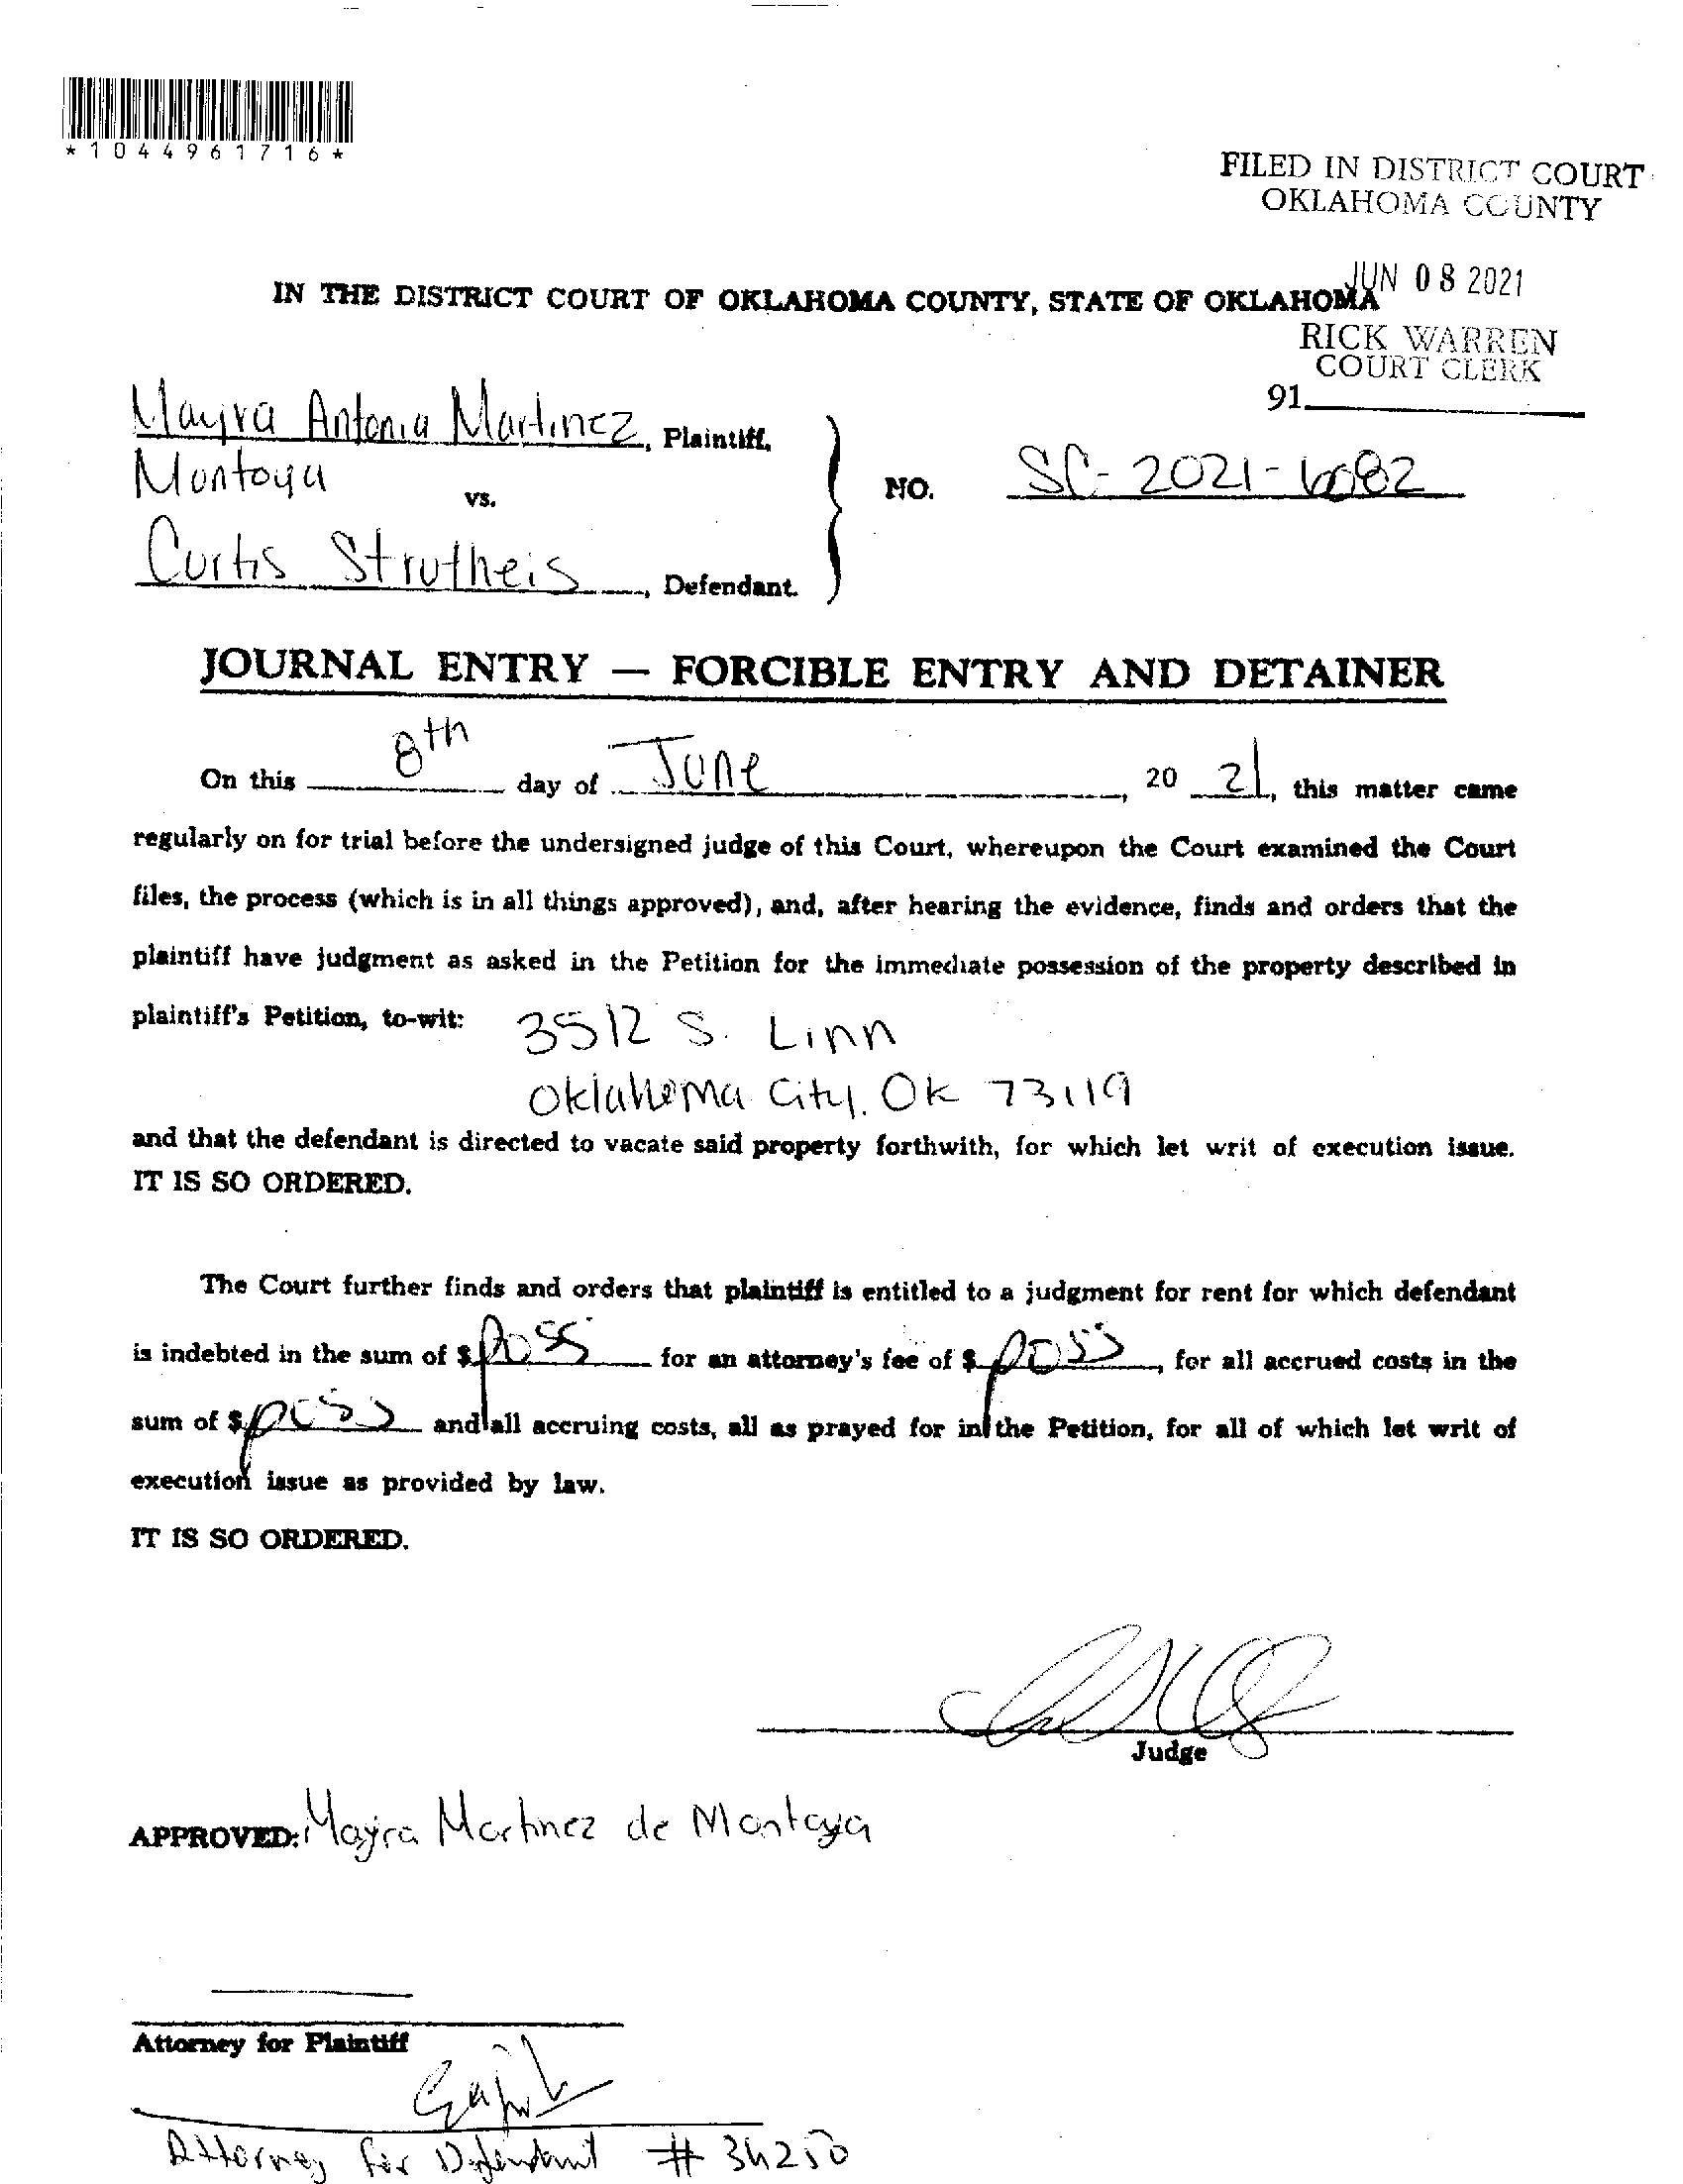 *1044961716*
FILED IN DISTRICT COURT
OKLAHOMA COUNTY
JUN 08 2021
IN THE DISTRICT COURT OF OKLAHOMA COUNTY, STATE OF OKLAHOMA
RICK WARREN
COURT CLERK
91
Mayra Antonia Martinez, Plaintiff,
Montoya
vs.
NO. SC-2021-6082
Curtis Strutheis, Defendant.
JOURNAL ENTRY — FORCIBLE ENTRY AND DETAINER
On this 8th day of June, 20 21, this matter came
regularly on for trial before the undersigned judge of this Court, whereupon the Court examined the Court
files, the process (which is in all things approved), and, after hearing the evidence, finds and orders that the
plaintiff have judgment as asked in the Petition for the immediate possession of the property described in
plaintiff's Petition, to-wit: 3512 S. Linn
Oklahoma City, OK 73119
and that the defendant is directed to vacate said property forthwith, for which let writ of execution issue.
IT IS SO ORDERED.
The Court further finds and orders that plaintiff is entitled to a judgment for rent for which defendant
is indebted in the sum of $ poss for an attorney's fee of $ poss, for all accrued costs in the
sum of $ poss and all accruing costs, all as prayed for in the Petition, for all of which let writ of
execution issue as provided by law.
IT IS SO ORDERED.
Judge
APPROVED: Mayra Martinez de Montoya
Attorney for Plaintiff
Attorney for Defendant # 34250